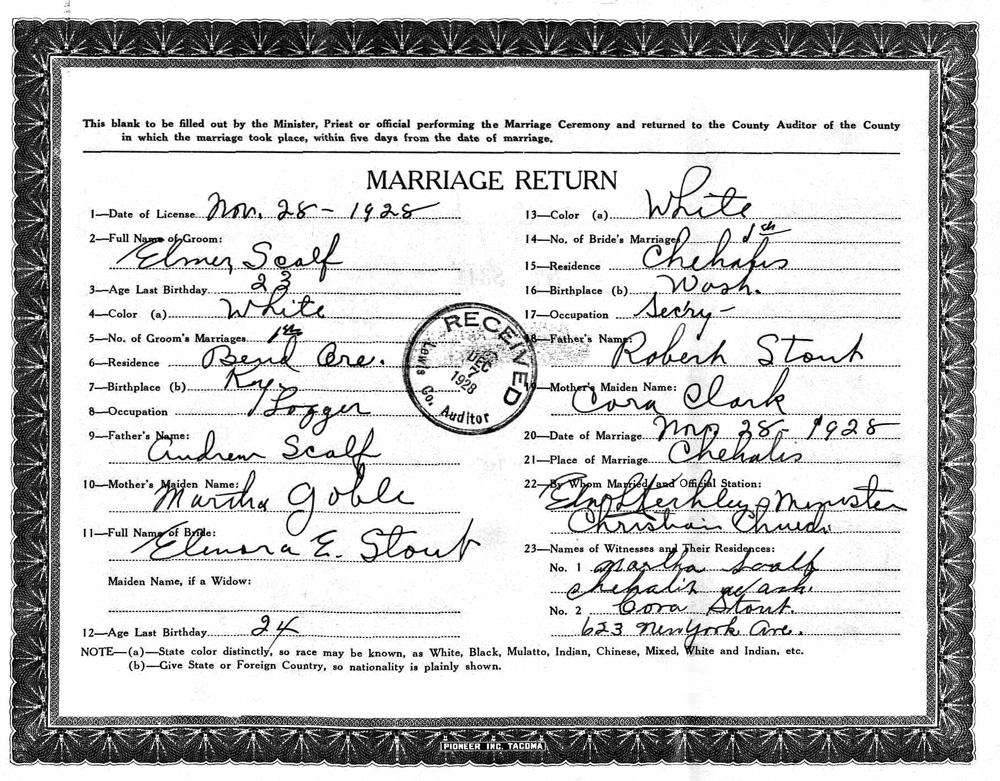 This blank to be filled out by the Minister, Priest or official performing the Marriage Ceremony and returned to the County Auditor of the County
in which the marriage took place, within five days from the date of marriage.
MARRIAGE RETURN
1—Date of License Nov. 28 - 1928
2—Full Name of Groom:
Elmer Scalf
3—Age Last Birthday 23
4—Color (a) White
5—No. of Groom's Marriages 1st
6—Residence Bend Ore.
7—Birthplace (b) Ky.
8—Occupation Logger
9—Father's Name:
Andrew Scalf
10—Mother's Maiden Name:
Martha Goble
11—Full Name of Bride:
Elenora E. Stout
Maiden Name, if a Widow:
12—Age Last Birthday 24
13—Color (a) White
14—No. of Bride's Marriages 1st
15—Residence Chehalis
16—Birthplace (b) Wash.
17—Occupation Sec'ry -
18—Father's Name:
Robert Stout
19—Mother's Maiden Name:
Cora Clark
20—Date of Marriage Nov 28 - 1928
21—Place of Marriage Chehalis
22—By Whom Married and Official Station:
Minister
Christian Church
23—Names of Witnesses and Their Residences:
No. 1 Martha Scalf
Chehalis Wash.
No. 2 Cora Stout.
623 New York Ave.
RECEIVED
DEC
7
1928
Lewis Co. Auditor
NOTE—(a)—State color distinctly, so race may be known, as White, Black, Mulatto, Indian, Chinese, Mixed, White and Indian, etc.
(b)—Give State or Foreign Country, so nationality is plainly shown.
PIONEER INC. TACOMA